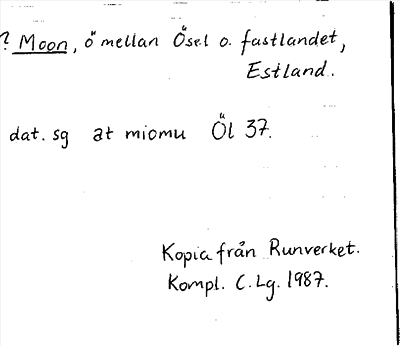 ? Moon, ö mellan Ösel o. fastlandet,
Estland.
dat. sg at miomu Öl 37.
Kopia från Runverket.
Kompl. C. Lg. 1987.